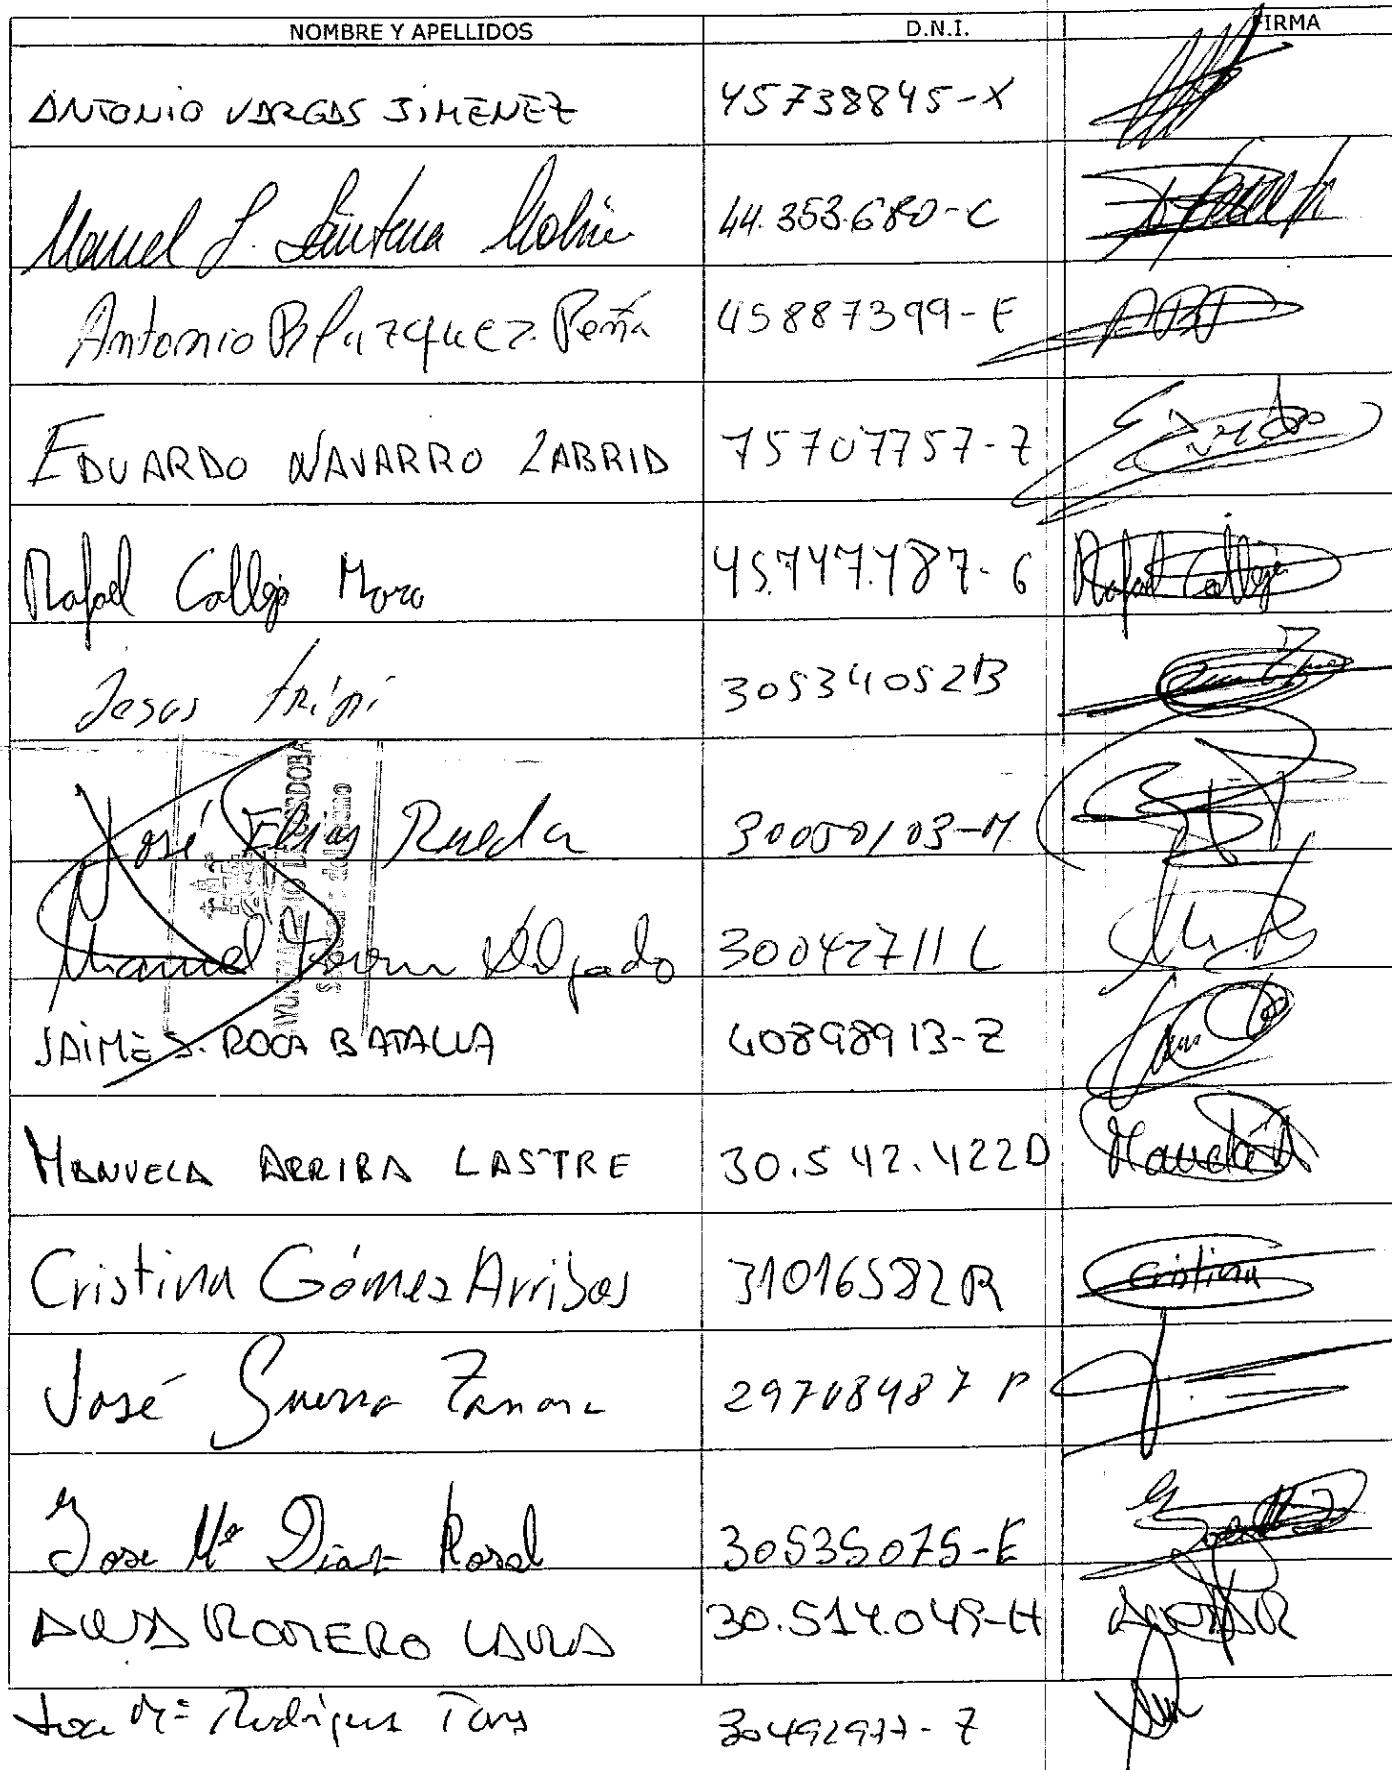 NOMBRE Y APELLIDOS D.N.I. FIRMA
ANTONIO VARGAS JIMENEZ 45738845-X
Manuel J. Santana Molina 44.353.680-C
Antonio Blazquez Peña 45887399-E
EDUARDO NAVARRO ZABRID 75707757-Z Eduardo
Rafael Callejo Moro 45.747.787-G Rafael Callejo
Jesus 30534052B
José Elias Rueda 30050103-M
Manuel Delgado 30042711 L
JAIME S. ROCA BATALLA 40898913-Z
MANUELA ARRIBA LASTRE 30.542.422D Manuela
Cristina Gómez Arribas 31016582R Cristina
José Guerra Zamora 29708487 P
Jose Mª Diaz Rosal 30535075-E
ROMERO LAURA 30.514.049-H
Jose Mª Rodriguez 30492977-Z